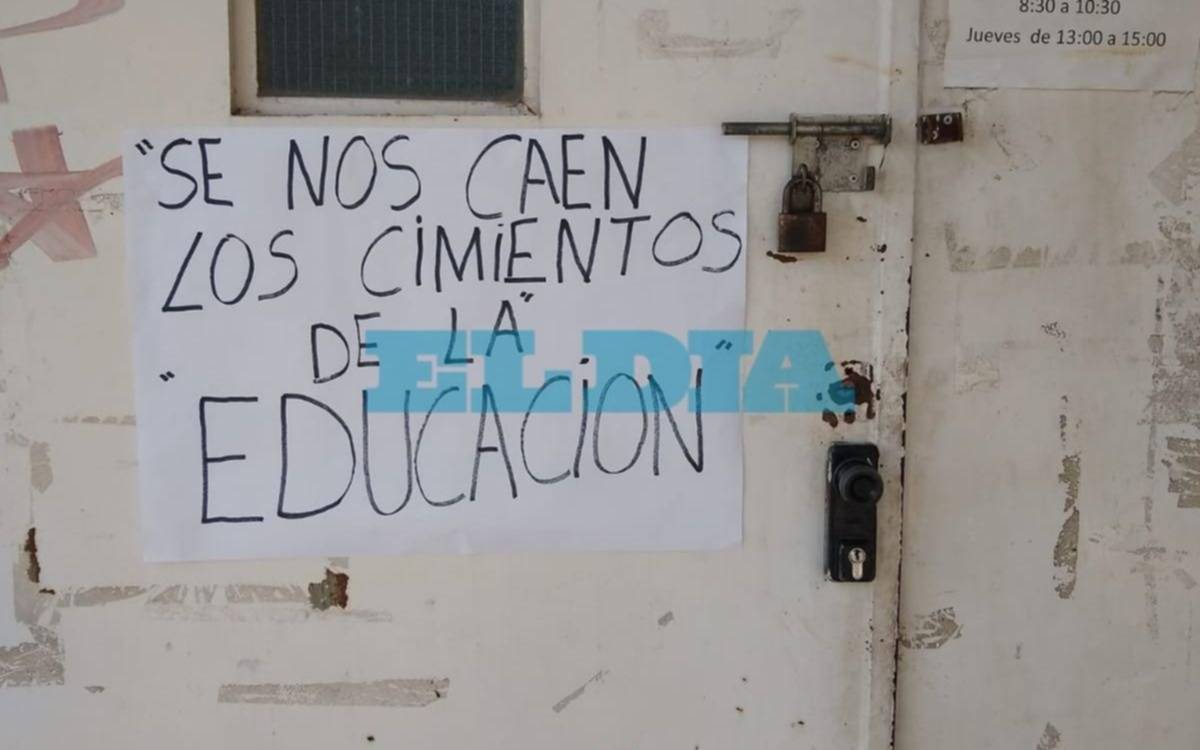 8:30 a 10:30
Jueves de 13:00 a 15:00
"SE NOS CAEN
LOS CIMIENTOS
DE LA"
"EDUCACION"
EL DIA